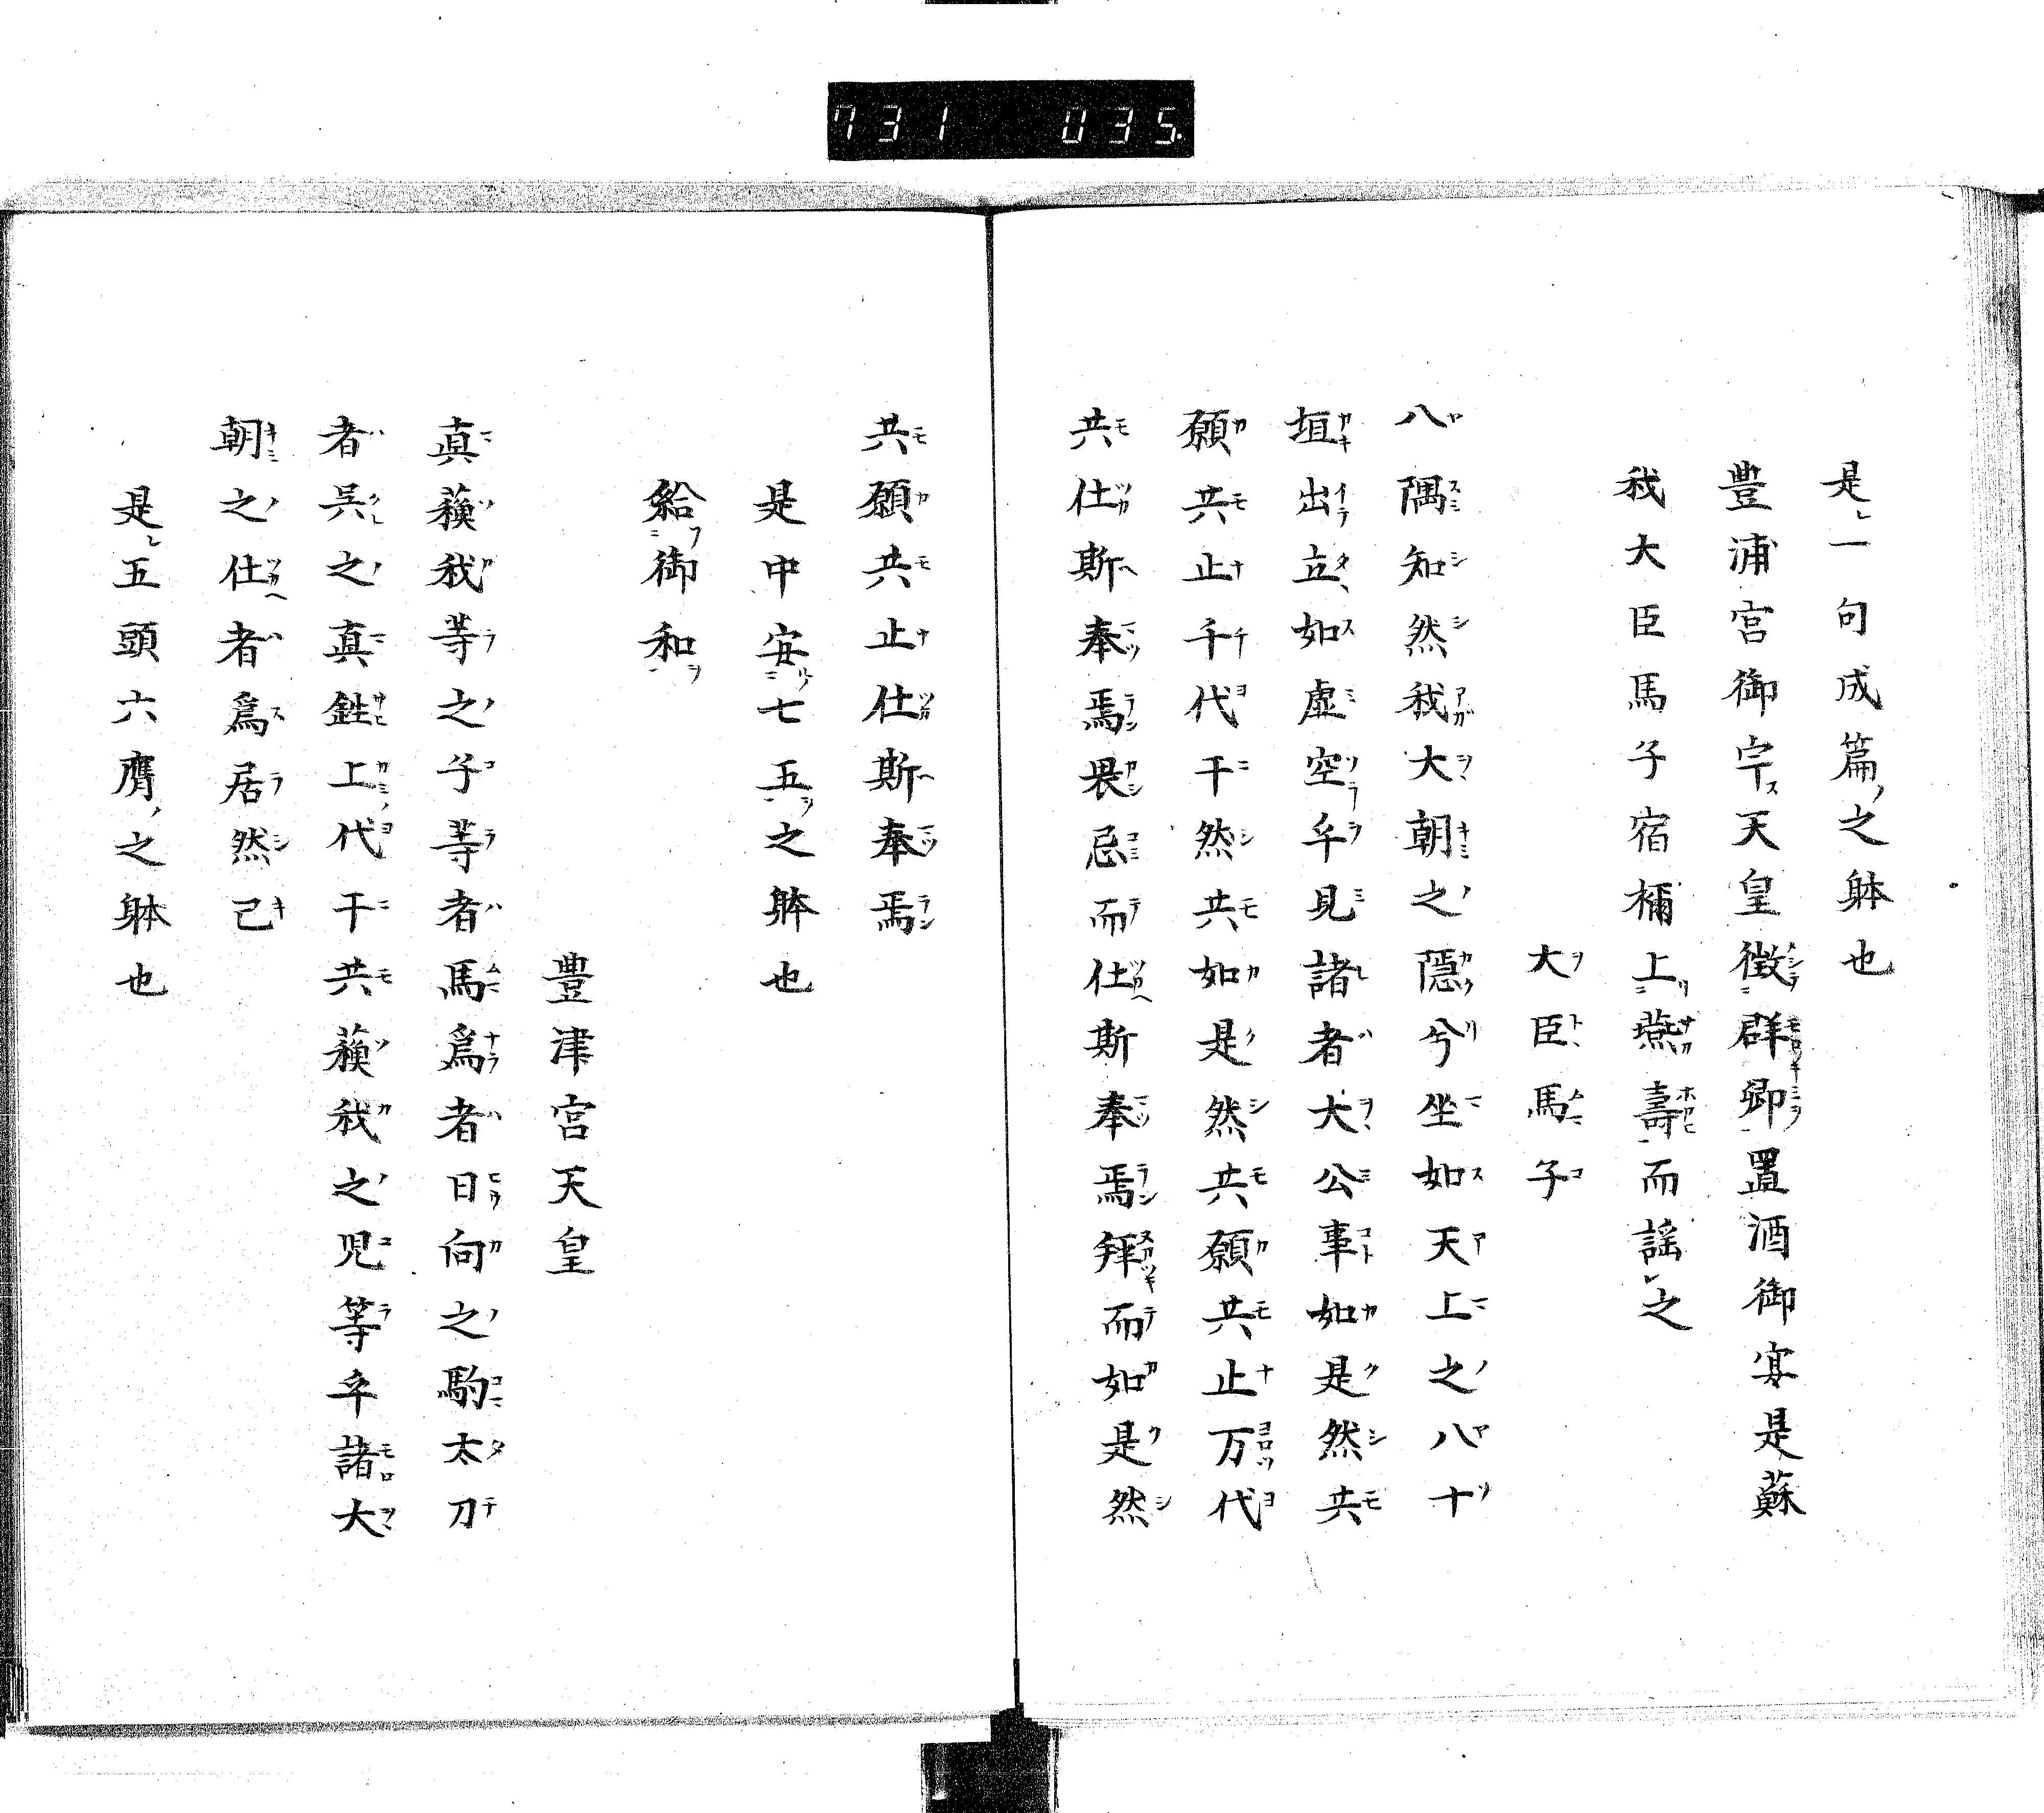 731 035.
是一句成篇之躰也
豊浦宮御宇天皇徴群卿置酒御宴是蘇
我大臣馬子宿祢上燕壽而謡之
大臣馬子
八隅知然我大朝之隠兮坐如天上之八十
垣出立如虚空乎見諸者大公事如是然共
願共止千代干然共如是然共願共止万代
共仕斯奉焉畏忌而仕斯奉焉拜而如是然
共願共止仕斯奉焉
是中安七五之躰也
給御和
豊津宮天皇
真蘓我等之子等者馬爲者日向之駒太刀
者呉之真鉎上代干共蘓我之児等乎諸大
朝之仕者爲居然己
是五頭六膺之躰也